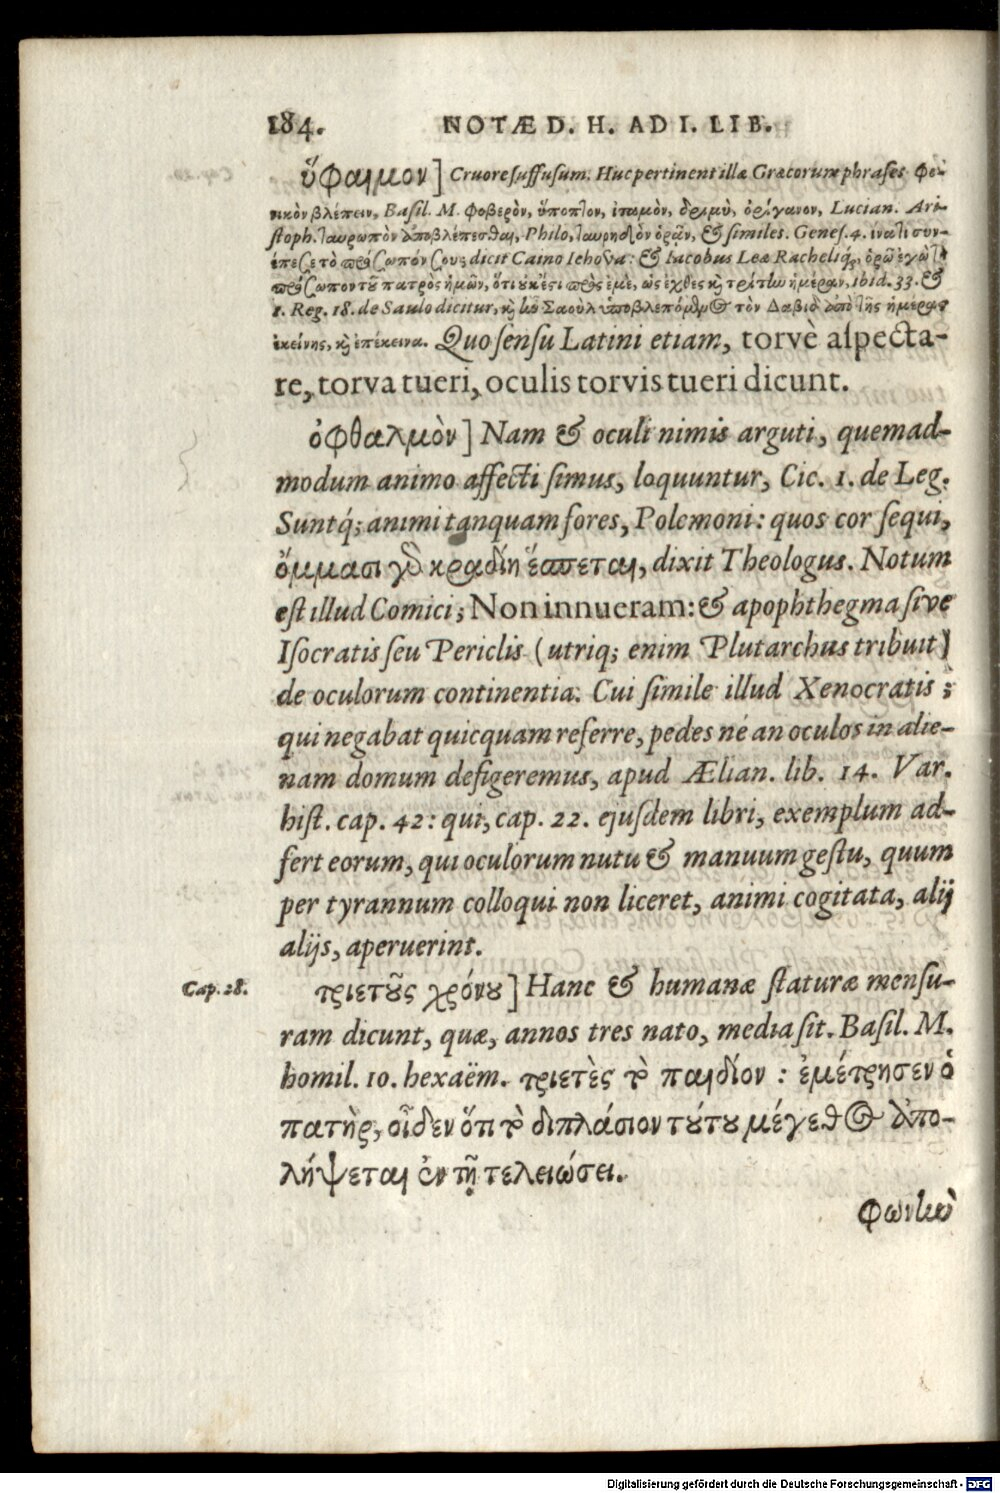 184. NOTÆ D. H. AD I. LIB.
ὕφαιμον] Cruore suffusum. Huc pertinent illæ Græcorum phrases Φοι-
νικὸν βλέπειν, Basil. M. Φοβερὸν, ὕποπτον, ἰταμὸν, δριμὺ, ὀρίγανον, Lucian. Ari-
stoph. ταυρωπὸν ἀποβλέπεσθαι, Philo, ταυρηδὸν ὁρᾶν, & similes. Genes. 4. ἱνατί συν-
έπεσε τὸ πρόσωπόν σου; dicit Caino Iehova: & Iacobus Leæ Rachelíq; ὁρῶ ἐγὼ τὸ
πρόσωπον τοῦ πατρὸς ἡμῶν, ὅτι οὐκ ἔστι πρὸς ἐμὲ, ὡς ἐχθὲς καὶ τρίτην ἡμέραν, ibid. 33. &
1. Reg. 18. de Saulo dicitur, καὶ ἦν Σαοὺλ ὑποβλεπόμενος τὸν Δαβὶδ ἀπὸ τῆς ἡμέρας
ἐκείνης, καὶ ἐπέκεινα. Quo sensu Latini etiam, torvè aspecta-
re, torva tueri, oculis torvis tueri dicunt.
ὀφθαλμὸν] Nam & oculi nimis arguti, quemad-
modum animo affecti simus, loquuntur, Cic. 1. de Leg.
Suntq́; animi tanquam fores, Polemoni: quos cor sequi,
ὄμμασι γὰρ κραδίη ἕσπεται, dixit Theologus. Notum
est illud Comici; Non innueram: & apophthegma sive
Isocratis seu Periclis (utriq; enim Plutarchus tribuit)
de oculorum continentia. Cui simile illud Xenocratis;
qui negabat quicquam referre, pedes né an oculos in alie-
nam domum defigeremus, apud Ælian. lib. 14. Var.
hist. cap. 42: qui, cap. 22. ejusdem libri, exemplum ad-
fert eorum, qui oculorum nutu & manuum gestu, quum
per tyrannum colloqui non liceret, animi cogitata, alij
alijs, aperuerint.
Cap. 28. τριετοῦς χρόνου] Hanc & humanæ staturæ mensu-
ram dicunt, quæ, annos tres nato, media sit. Basil. M.
homil. 10. hexaëm. τριετὲς τὸ παιδίον : ἐμέτρησεν ὁ
πατὴρ, οἶδεν ὅτι τὸ διπλάσιον τούτου μέγεθος ἀπο-
λήψεται ἐν τῇ τελειώσει.
φωνὴν
Digitalisierung gefördert durch die Deutsche Forschungsgemeinschaft - DFG